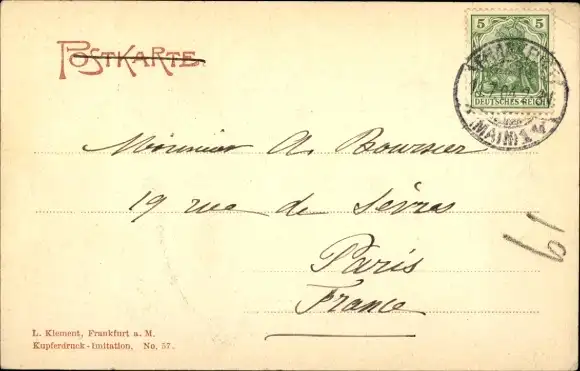 POSTKARTE
5 5
DEUTSCHES REICH
FRANKFURT
(MAIN) 1
Monsieur A. Boursier
19 rue de Sèvres
Paris
France
61
L. Klement, Frankfurt a. M.
Kupferdruck-Imitation, No. 57.